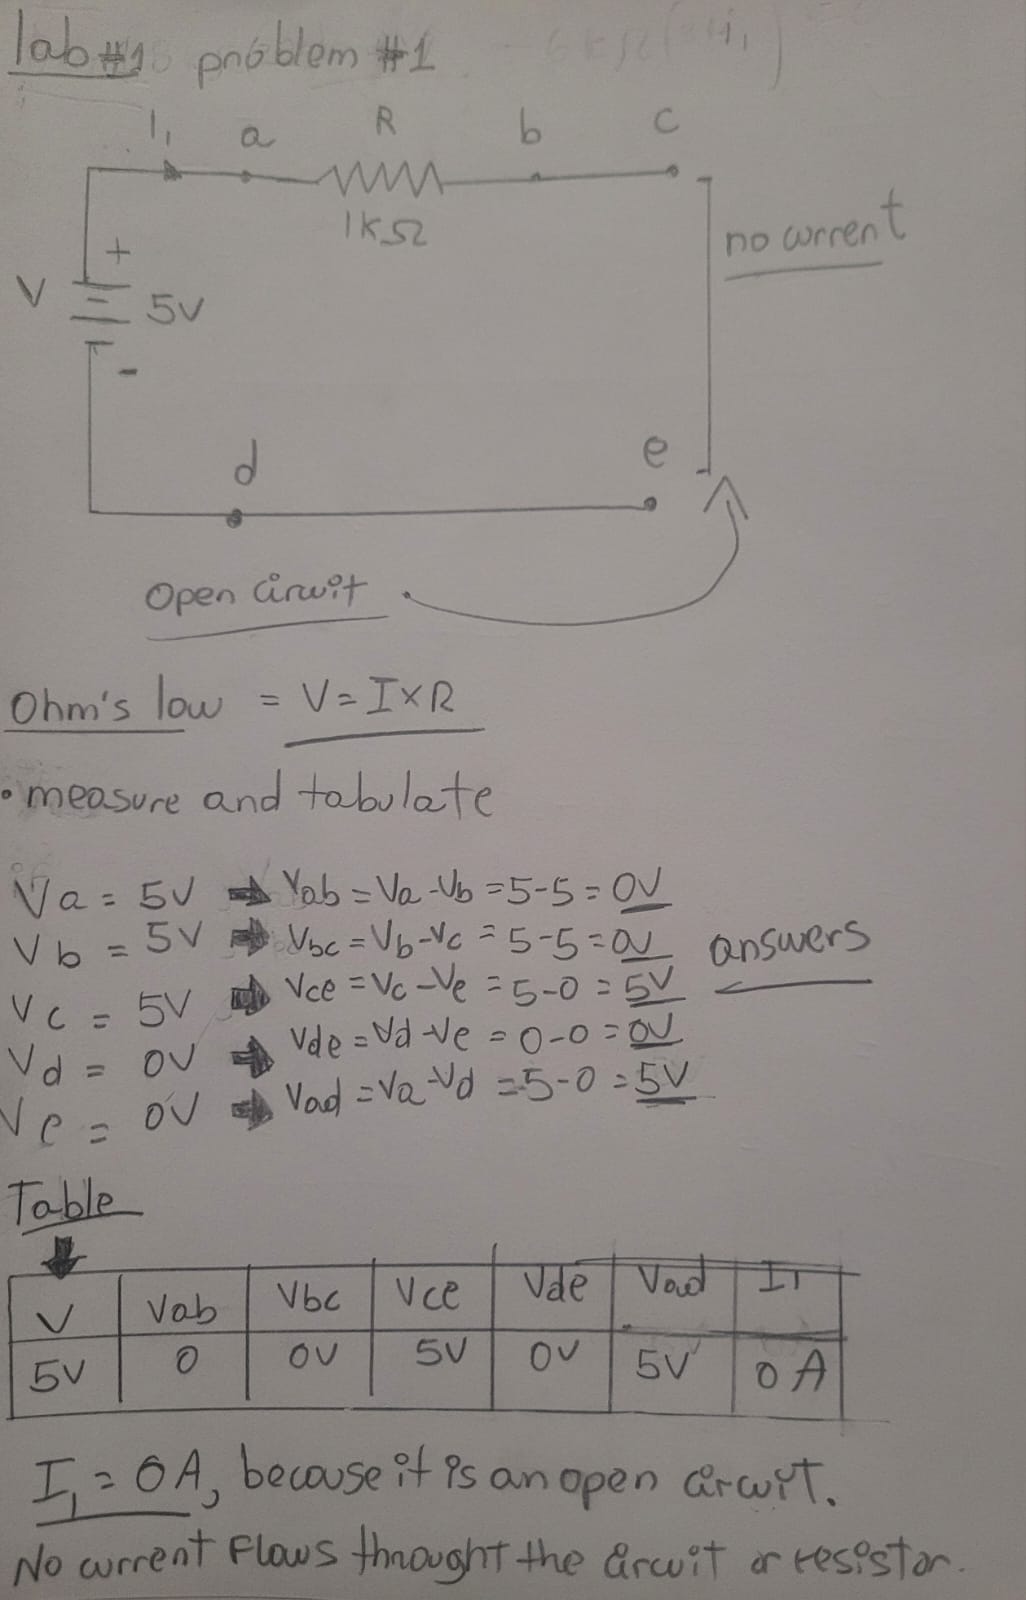 lab #1 problem #1
I₁ a R b c
1KΩ
no current
+
V 5V
-
d e
Open circuit
Ohm's low = V=I×R
• measure and tabulate
Va = 5V ➡ Vab = Va-Vb =5-5 = 0V
Vb = 5V ➡ Vbc = Vb-Vc = 5-5=0V answers
Vc = 5V ➡ Vce = Vc-Ve = 5-0 = 5V
Vd = 0V ➡ Vde = Vd-Ve = 0-0 = 0V
Ve = 0V ➡ Vad = Va-Vd = 5-0 = 5V
Table
V Vab Vbc Vce Vde Vad I₁
5V 0 0V 5V 0V 5V 0 A
I₁ = 0 A, because it is an open circuit.
No current Flows throught the circuit or resistor.